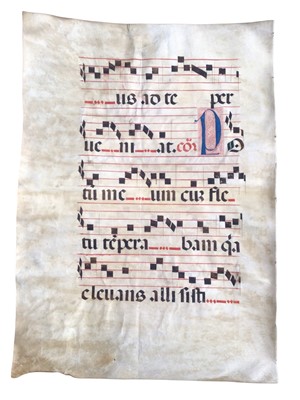 us ad te per
ue ni at. cõ P o
tũ me um cuz fle
tu tẽpera bam q̃a
eleuans allisisti